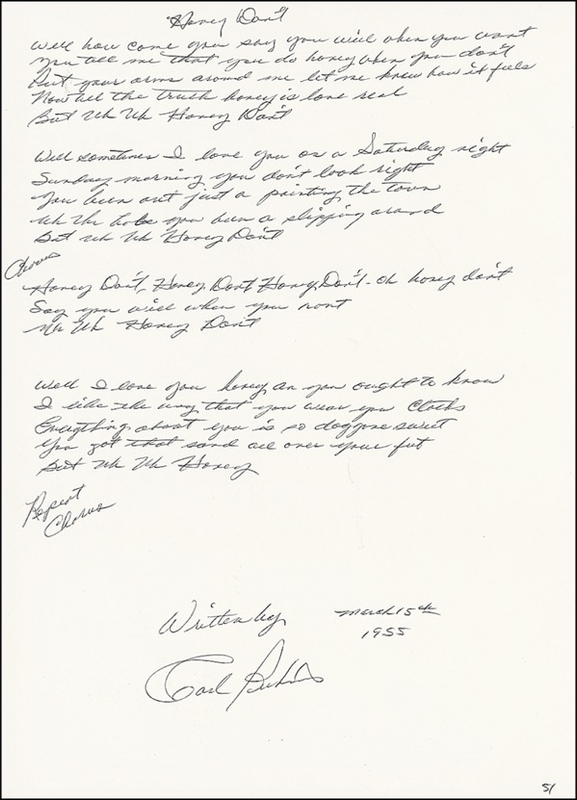 Honey Don't
Well how come you say you will when you wont
You tell me that you do honey when you don't
Put your arms around me let me know how it feels
Now tell the truth honey is love real
But Uh Uh Honey Don't
Well sometimes I love you on a Saturday night
Sunday morning you don't look right
You been out just a painting the town
Uh Uh babe you been a slipping around
But Uh Uh Honey Don't
Chorus
Honey Don't, Honey, Dont, Honey, Don't - Oh honey don't
Say you will when you wont
Uh Uh Honey Don't
Well I love you honey an you ought to know
I like the way that you wear you cloths
Everything about you is so doggone sweet
You got that sand all over your feet
But Uh Uh Honey
Repeat
Chorus
Written by March 15th
1955
Carl Perkins
51